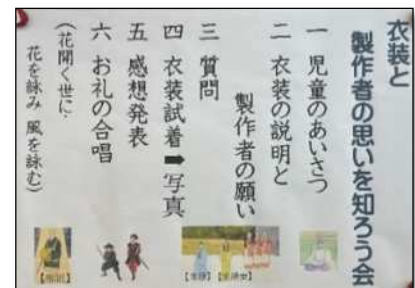 衣装と
製作者の思いを知ろう会
一 児童のあいさつ
二 衣装の説明と
製作者の願い
三 質問
四 衣装試着➡写真
五 感想発表
六 お礼の合唱
(花開く世に・
花を詠み 風を詠む)